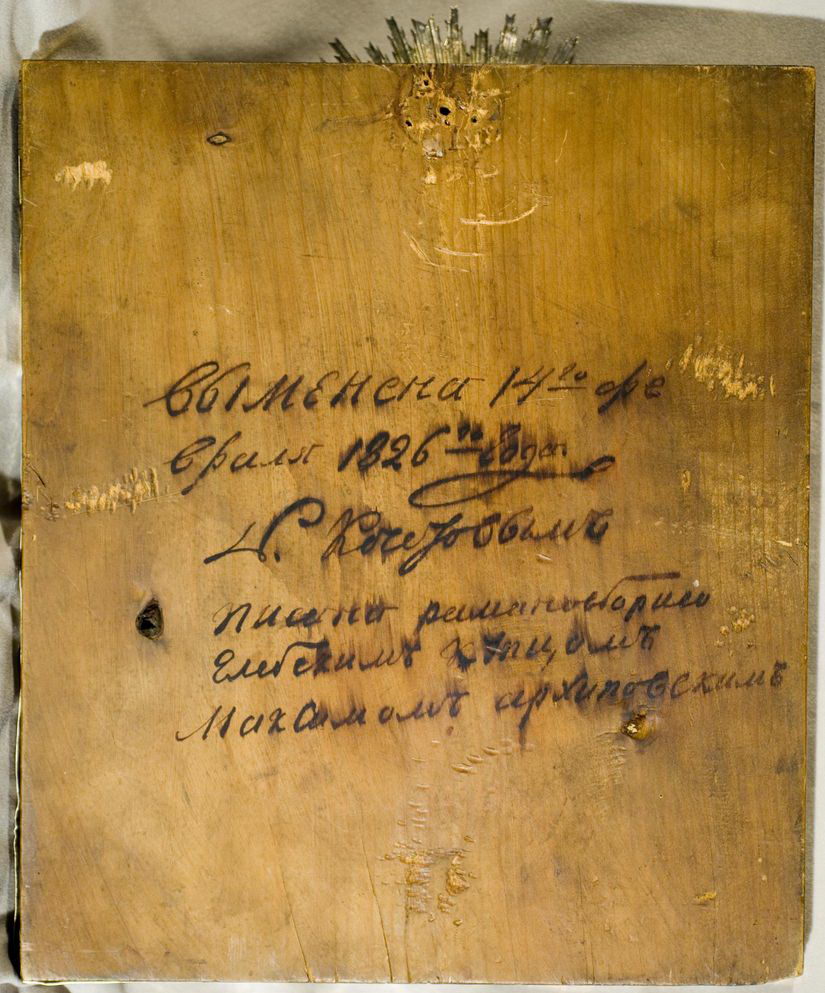 выменена 14го фе
враля 1826го года
Д. Костровымъ
писана раманоборисо
Глебскимъ купцомъ
Максимомъ архиповскимъ